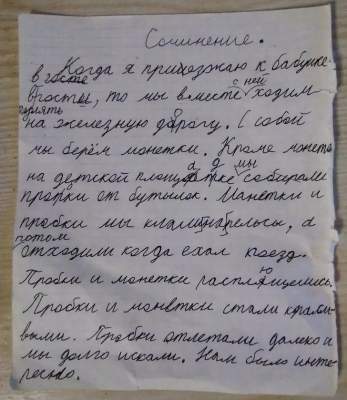 Сочинение.
Когда я приезжаю к бабушке
в гости
в гости, то мы вместе с ней ходим
гулять
на железную дорогу. С собой
мы берём монетки. Кроме монеток
на детской площадке мы собирали
пробки от бутылок. Манетки и
пробки мы клали на рельсы, а
потом
отходили когда ехал поезд.
Пробки и монетки расплющились.
Пробки и монетки стали краси-
выми. Пробки отлетали далеко и
мы долго искали. Нам было инте-
ресно.